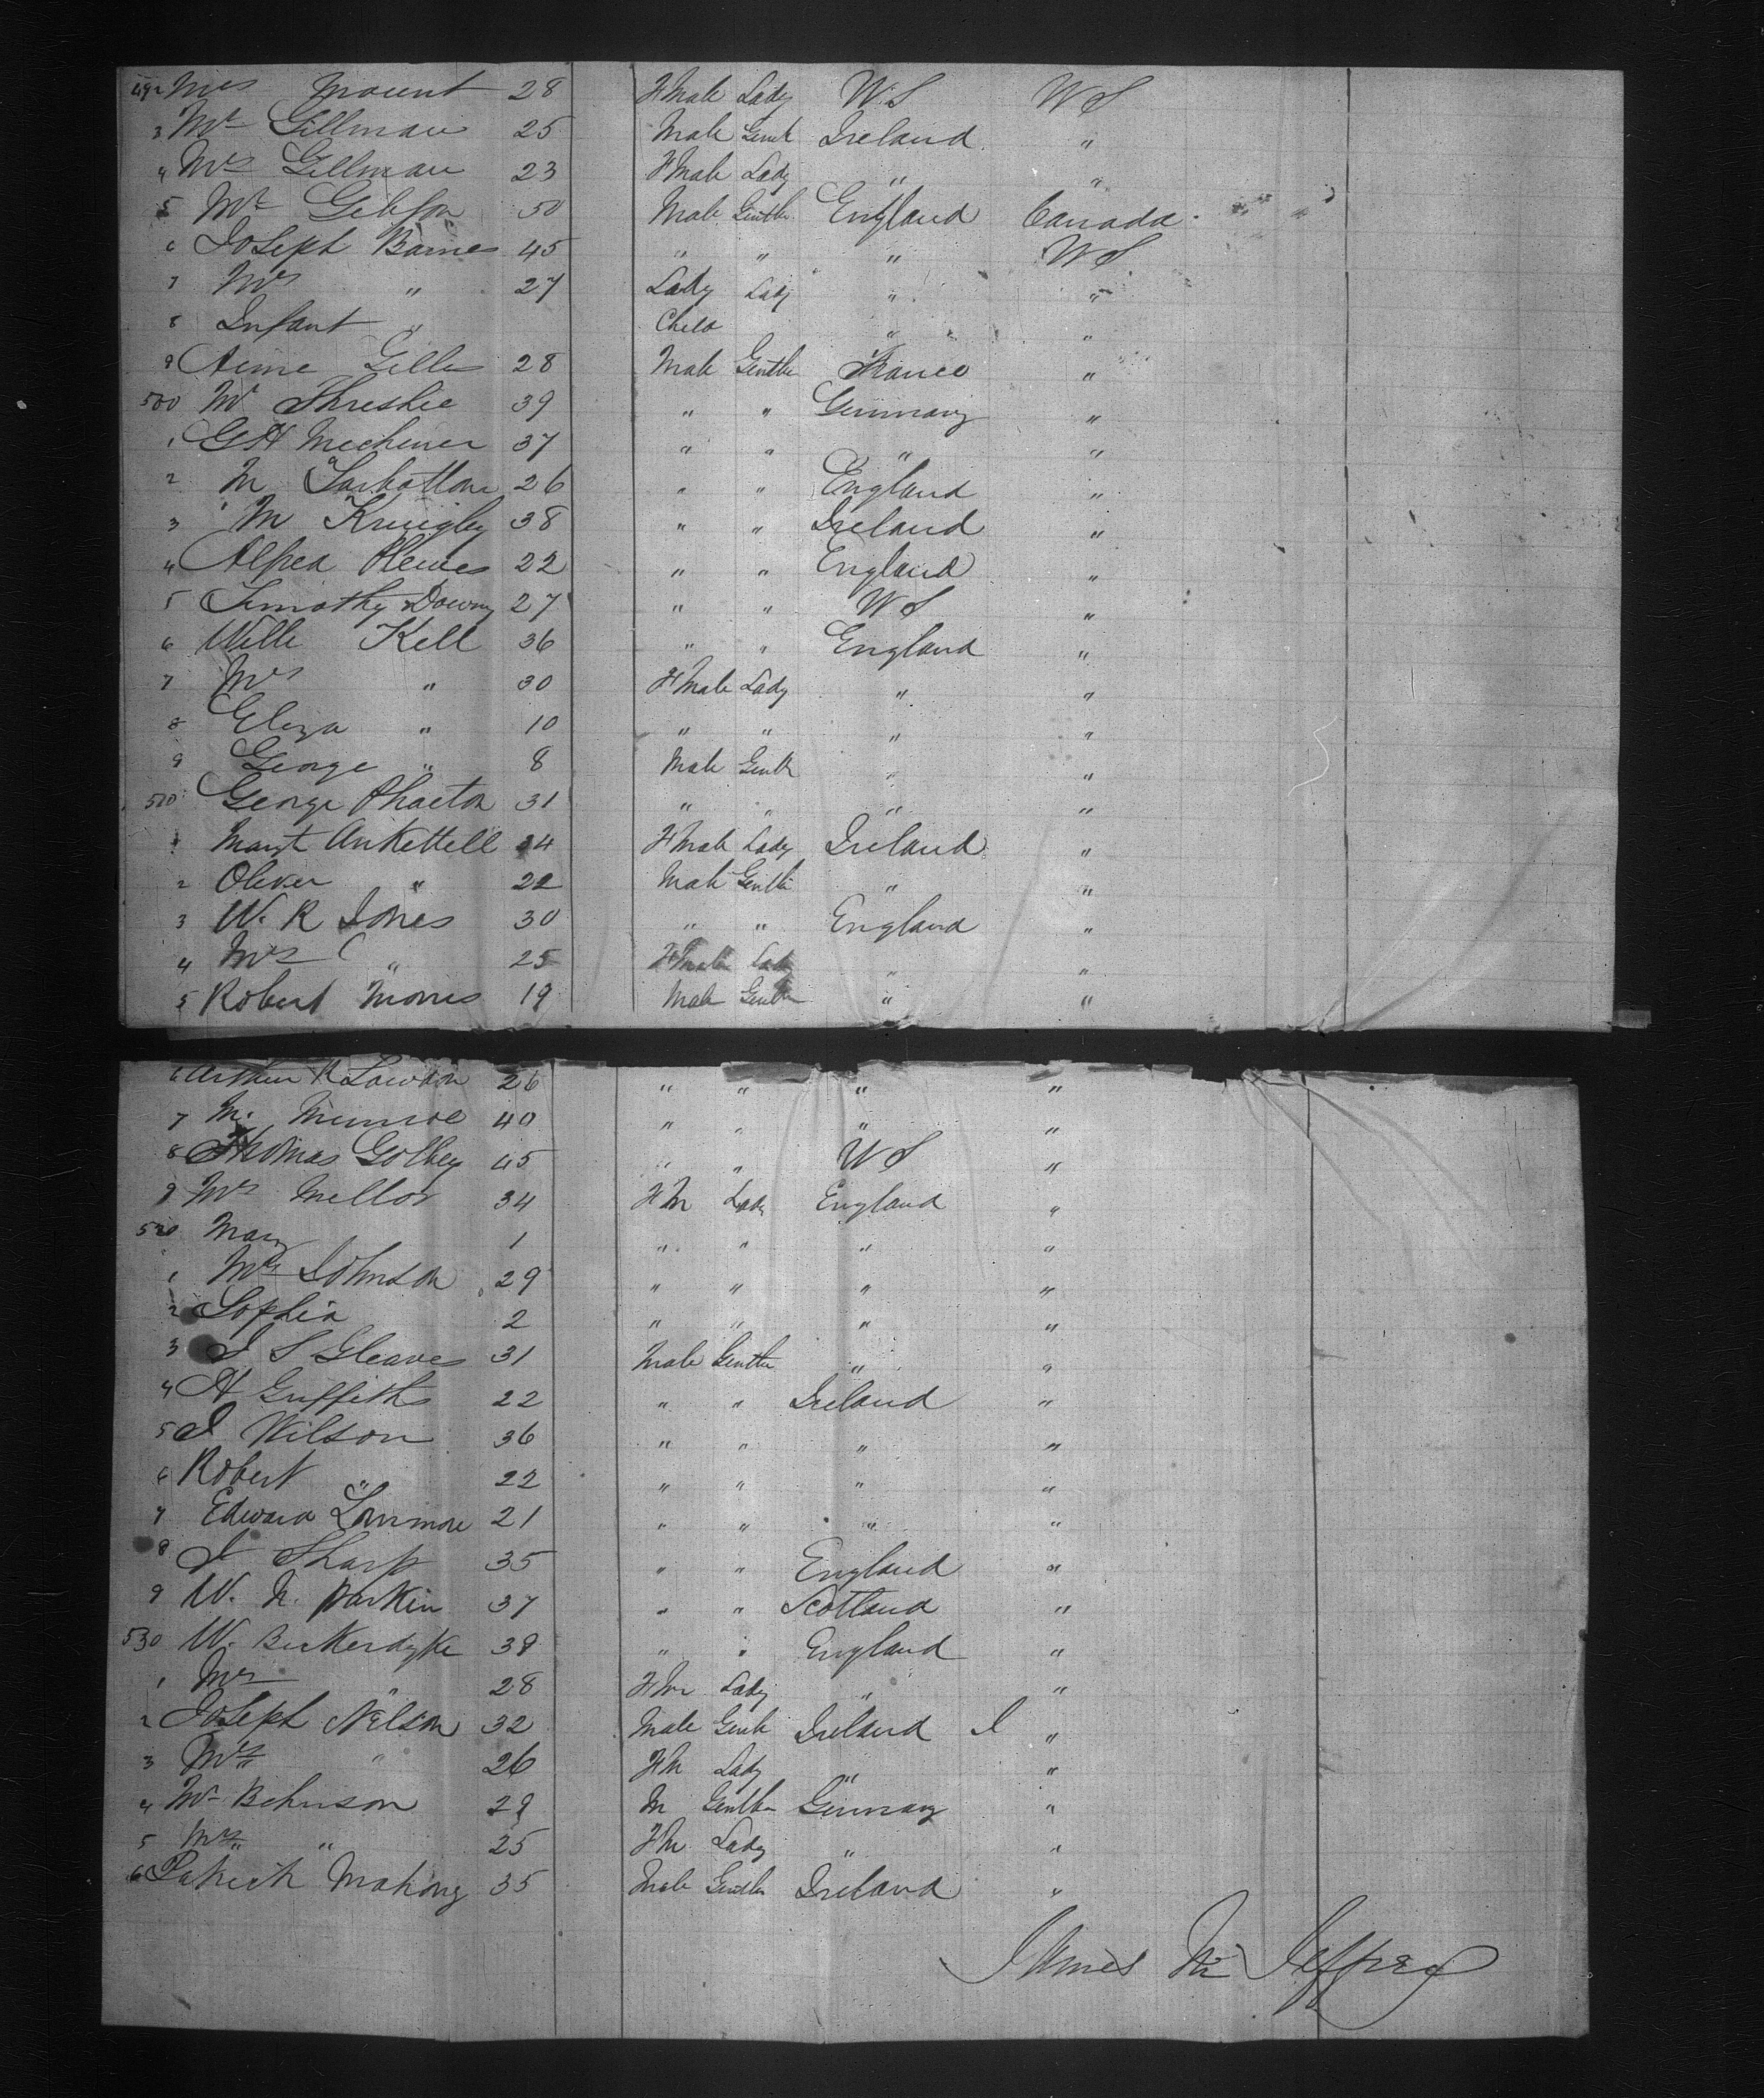 492 Mrs Mount 28 F Male Lady U.S U S
3 Mr Gillman 25 Male Gentle Ireland "
4 Mrs Gillman 23 F Male Lady " "
5 Mr Gibson 50 Male Gentle England Canada
6 Joseph Barnes 45 " " " U S
7 Mrs " 27 Lady Lady " "
8 Infant " Child " "
9 Aime Gille 28 Male Gentle France "
500 Mr 39 " " Germany "
1 G H Mechener 37 " " " "
2 M 26 " " England "
3 M 38 " " Ireland "
4 Alfred 22 " " England "
5 Timothy Downy 27 " " U S "
6 Will Kell 36 " " England "
7 Mrs " 30 F Male Lady " "
8 Eliza " 10 " " " "
9 George " 8 Male Gentle " "
510 George Phaeton 31 " " " "
1 Margt Ankettell 24 F Male Lady Ireland "
2 Oliver " 22 Male Gentle " "
3 W. R Jones 30 " " England "
4 Mrs " 25 F Male Lady " "
5 Robert Morris 19 Male Gentle " "
6 Arthur R Lawson 26 " " " "
7 Mr Munroe 40 " " " "
8 Thomas Golbey 45 " " U S "
9 Mrs Mellor 34 F M Lady England "
520 Mary 1 " " " "
1 Mrs Johnson 29 " " " "
2 Sophia 2 " " " "
3 J S Gleaves 31 Male Gentle " "
4 H Griffiths 22 " " Ireland "
5 J Wilson 36 " " " "
6 Robert " 22 " " " "
7 Edward Lorrimore 21 " " " "
8 J Sharp 35 " " England "
9 W. N. Parkin 37 " " Scotland "
530 W. Beckerdyke 38 " " England "
1 Mrs " 28 F M Lady " "
2 Joseph Nelson 32 Male Gentle Ireland I "
3 Mrs " 26 F M Lady " "
4 Mr Behnson 29 M Gentle Germany "
5 Mrs " 25 F M Lady " "
6 Patrick Mahony 35 Male Gentle Ireland "
James Mc Jeffrey